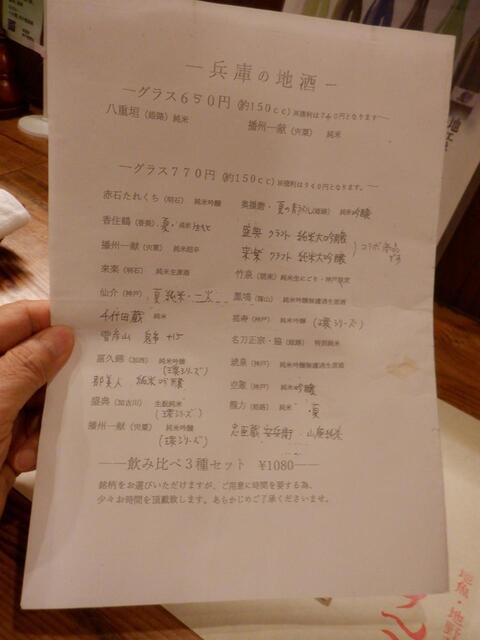 ―兵庫の地酒―
―グラス650円(約150cc)※徳利は740円となります―
八重垣(姫路)純米
播州一献(宍粟) 純米
―グラス770円(約150cc)※徳利は940円となります。―
赤石たれくち(明石) 純米吟醸
香住鶴(香美) 夏・
播州一献(宍粟) 純米超辛
来楽(明石) 純米生原酒
仙介(神戸) 夏純米・二火
千代田蔵 純米
雪彦山 +15
富久錦(加西) 純米吟醸
(環シリーズ)
都美人 純米吟醸
盛典(加古川) 生酛純米
(環シリーズ)
播州一献(宍粟) 純米吟醸
(環シリーズ)
奥播磨・夏の(姫路) 純米吟醸
盛典 クラフト 純米大吟醸
来楽 クラフト 純米大吟醸
コラボ商品です
竹泉(朝来)純米生にごり・神戸限定
鳳鳴(篠山) 純米吟醸無濾過生原酒
(神戸) 純米吟醸 (環シリーズ)
名刀正宗・脇(姫路) 特別純米
琥泉(神戸) 純米吟醸無濾過生原酒
空蔵(神戸) 純米吟醸
龍力(姫路) 純米 夏
忠臣蔵 安兵衛 山廃純米
――飲み比べ3種セット ¥1080――
銘柄をお選びいただけますが、ご用意に時間を要する為、
少々お時間を頂戴致します。あらかじめご了承くださいませ。
地魚・地野